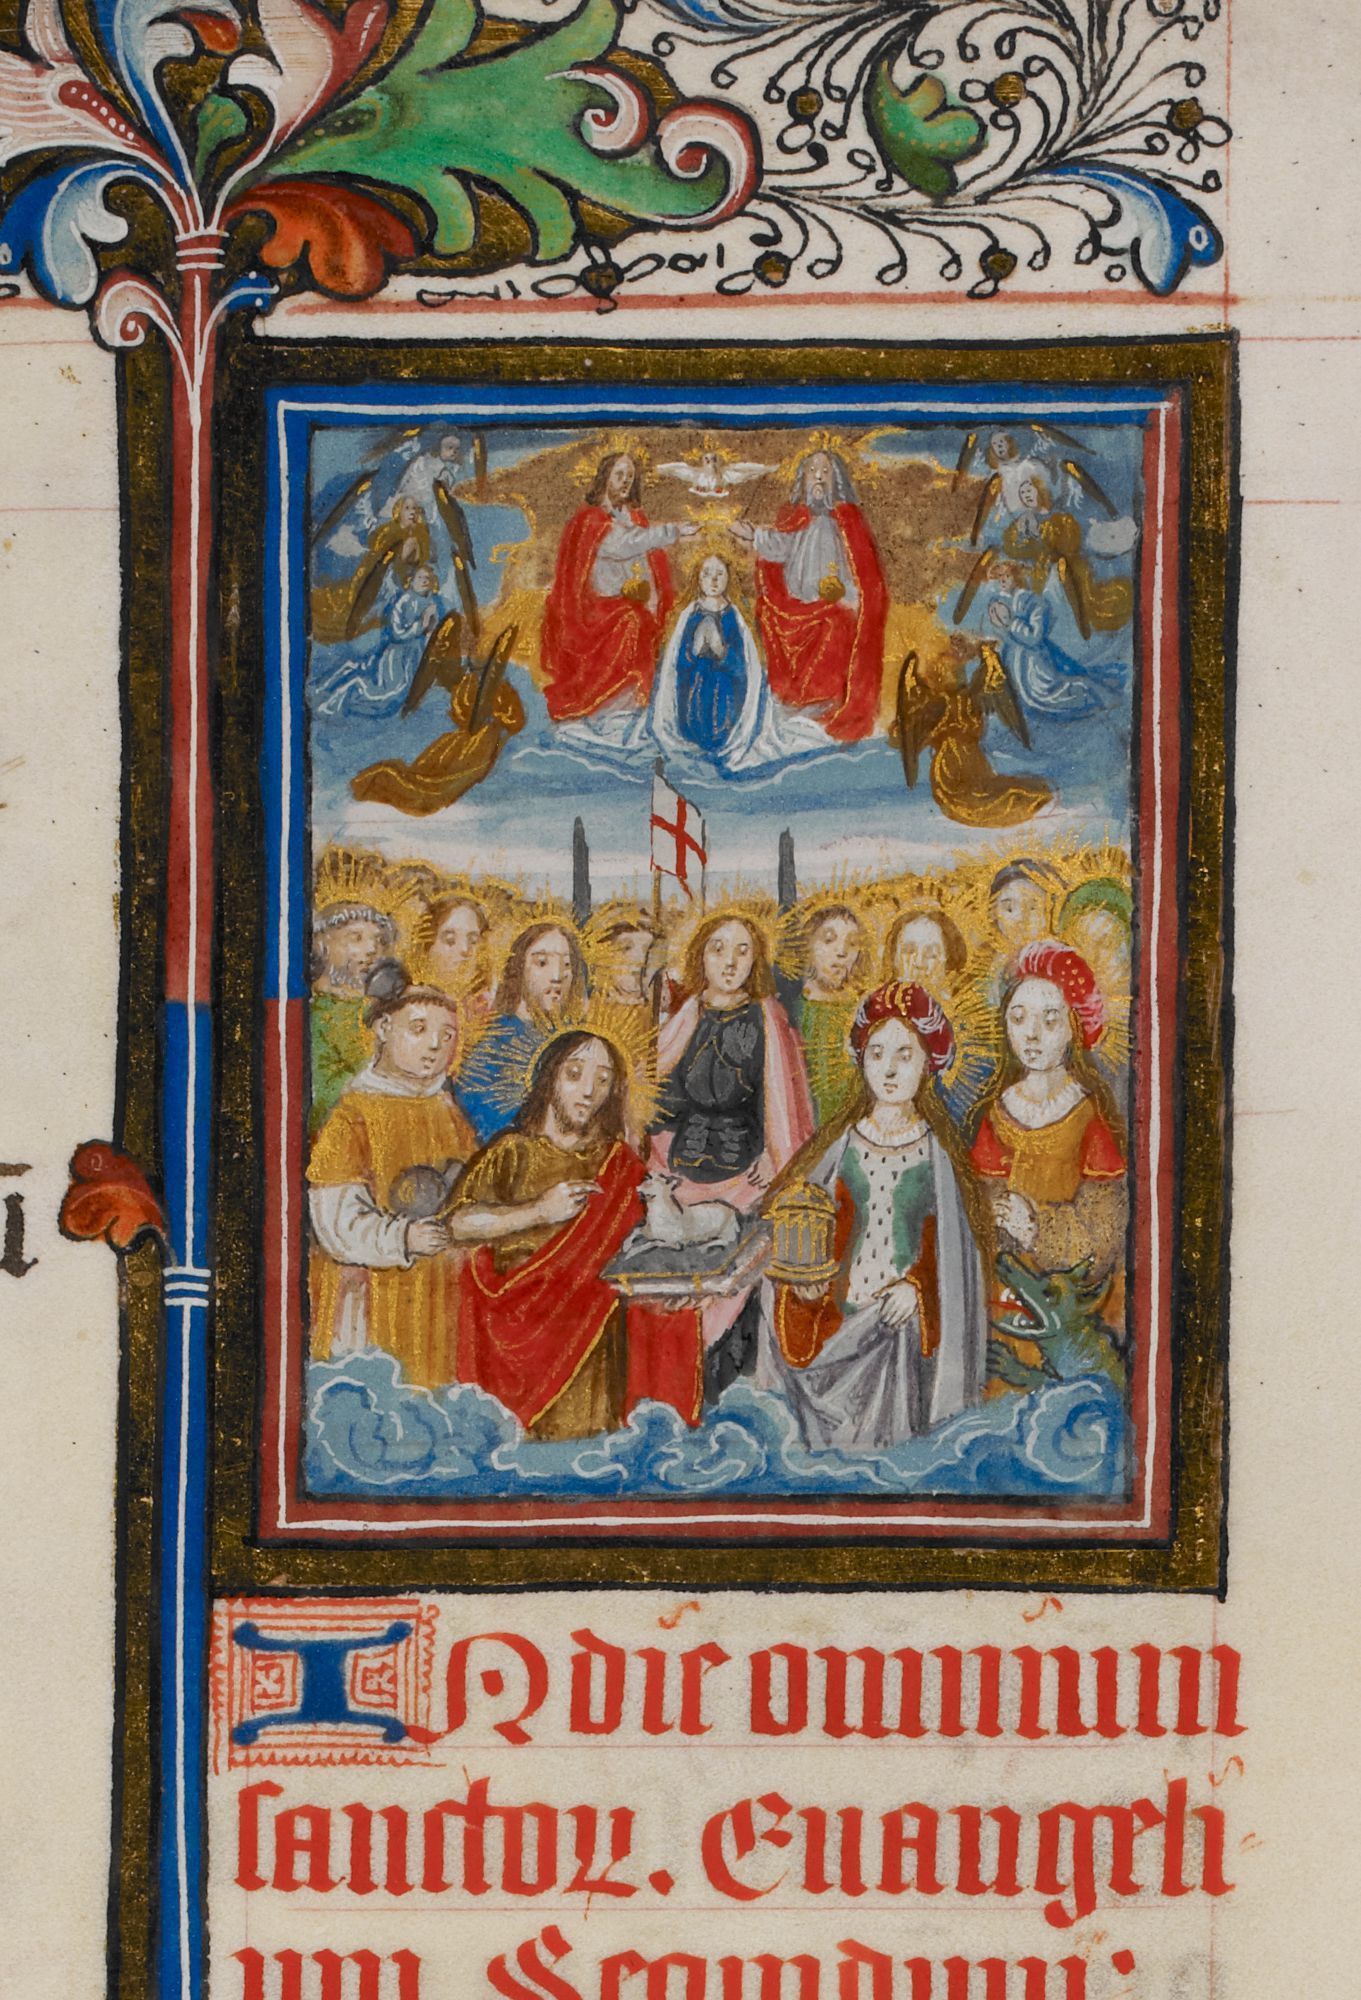 IN die omnium
sanctoꝝ. Euangeli
um Secundum: